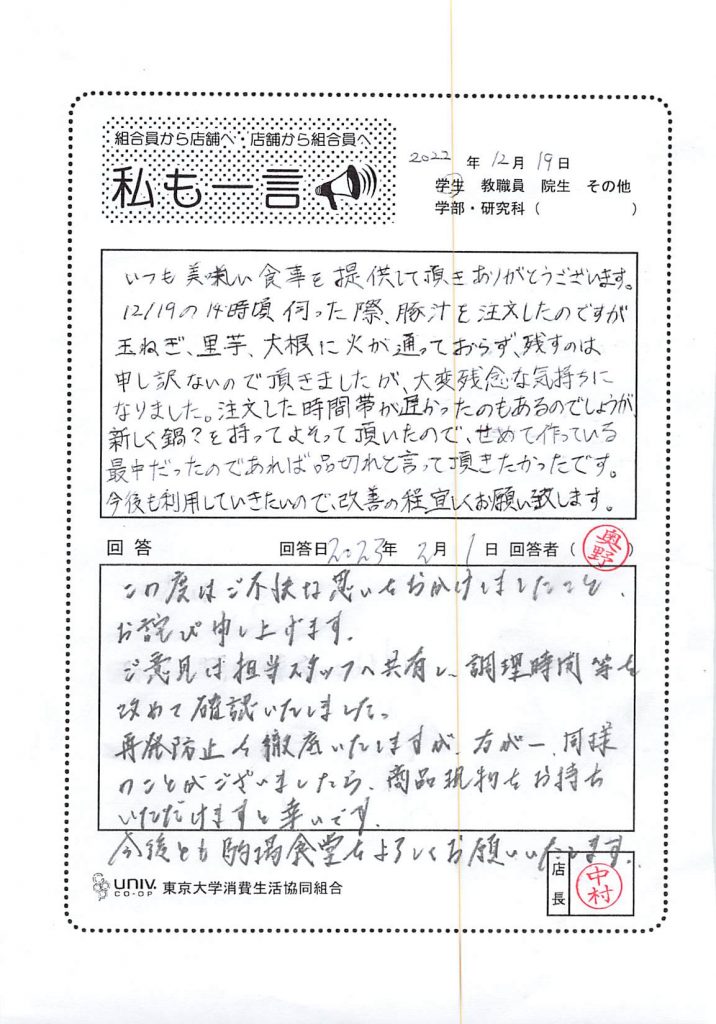 組合員から店舗へ・店舗から組合員へ
私も一言
2022年 12月 19日
学生 教職員 院生 その他
学部・研究科（ ）
いつも美味しい食事を提供して頂きありがとうございます。
12/19の14時頃伺った際、豚汁を注文したのですが
玉ねぎ、里芋、大根に火が通っておらず、残すのは
申し訳ないので頂きましたが、大変残念な気持ちに
なりました。注文した時間帯が遅かったのもあるのでしょうが、
新しく鍋?を持ってよそって頂いたので、せめて作っている
最中だったのであれば品切れと言って頂きたかったです。
今後も利用していきたいので、改善の程宜しくお願い致します。
回答 回答日2023年 2月 1日 回答者（奥野）
この度はご不快な思いをおかけしましたこと、
お詫び申し上げます。
ご意見は担当スタッフへ共有し、調理時間等を
改めて確認いたしました。
再発防止を徹底いたしますが、万が一、同様
のことがございましたら、商品現物をお持ち
いただけますと幸いです。
今後とも駒場食堂をよろしくお願いいたします。
UNIV. CO-OP 東京大学消費生活協同組合
店長 中村